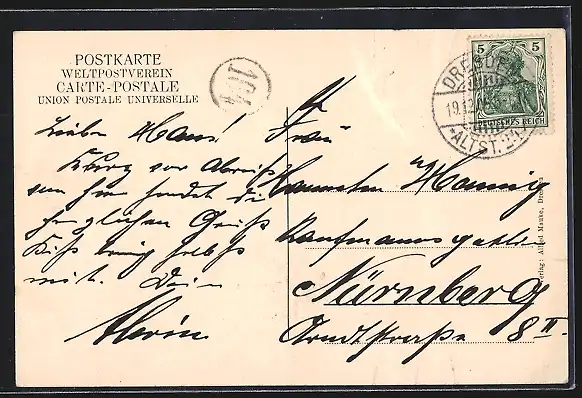 POSTKARTE
WELTPOSTVEREIN
CARTE-POSTALE
UNION POSTALE UNIVERSELLE
104
5 5
DEUTSCHES REICH
DRESDEN
19.12
*ALTST. 24
Lieber Hans!
Kurz vor Abreise
sendet Dir
herzlichen Gruß
Kuß bring selbst
mit. Dein
Frau
Hanning
Kaufmannsgattin
Nürnberg
Arndtstraße 8 II.
Verlag: Alfred Mauke, Dresden